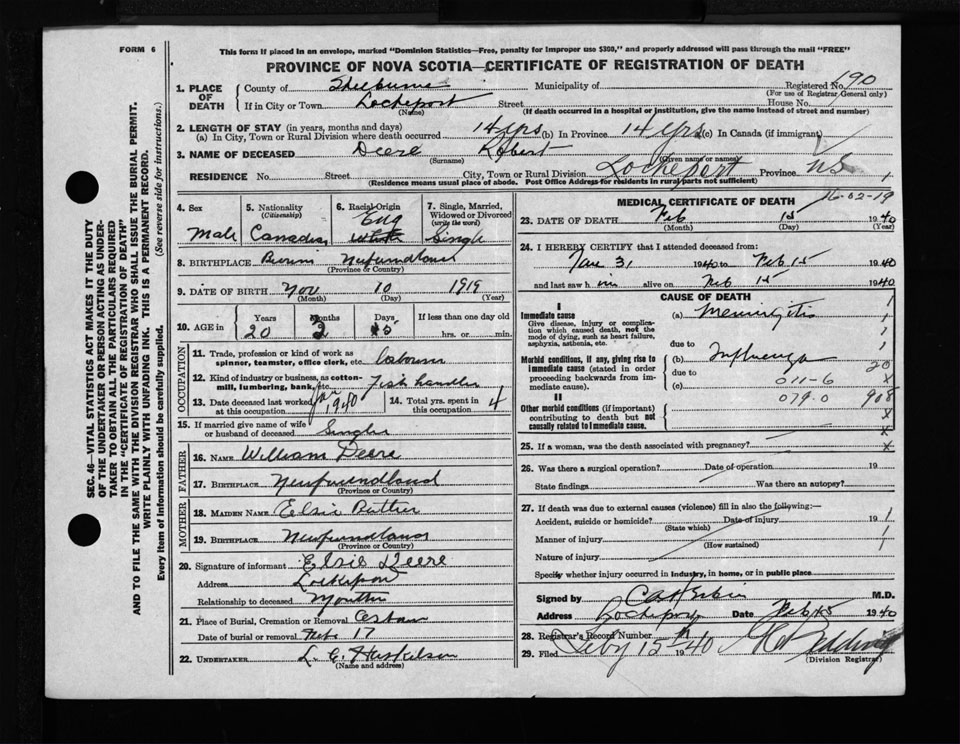 FORM 6
This form if placed in an envelope, marked "Dominion Statistics—Free, penalty for improper use $300," and properly addressed will pass through the mail "FREE"
PROVINCE OF NOVA SCOTIA—CERTIFICATE OF REGISTRATION OF DEATH
SEC. 46—VITAL STATISTICS ACT MAKES IT THE DUTY
OF THE UNDERTAKER OR PERSON ACTING AS UNDER-
TAKER TO OBTAIN ALL THE PARTICULARS REQUIRED
IN THE "CERTIFICATE OF REGISTRATION OF DEATH"
AND TO FILE THE SAME WITH THE DIVISION REGISTRAR WHO SHALL ISSUE THE BURIAL PERMIT.
WRITE PLAINLY WITH UNFADING INK. THIS IS A PERMANENT RECORD.
Every item of information should be carefully supplied. (See reverse side for instructions.)
1. PLACE OF DEATH
County of Shelburne Municipality of Registered No. 190
(For use of Registrar General only)
If in City or Town Lockeport Street House No.
(Name) (If death occurred in a hospital or institution, give the name instead of street and number)
2. LENGTH OF STAY (in years, months and days)
(a) In City, Town or Rural Division where death occurred 14 yrs (b) In Province 14 yrs (c) In Canada (if immigrant)
3. NAME OF DECEASED Deere Robert
(Surname) (Given name or names)
RESIDENCE No. Street City, Town or Rural Division Lockeport Province NS
(Residence means usual place of abode. Post Office Address for residents in rural parts not sufficient)
4. Sex Male
5. Nationality (Citizenship) Canadian
6. Racial Origin Eng White
7. Single, Married, Widowed or Divorced (write the word) Single
8. BIRTHPLACE Burin Newfundland
(Province or Country)
9. DATE OF BIRTH Nov 10 1919
(Month) (Day) (Year)
10. AGE in Years Months Days If less than one day old
20 2 5 hrs. or min.
OCCUPATION
11. Trade, profession or kind of work as spinner, teamster, office clerk, etc. Labourer
12. Kind of industry or business, as cotton-mill, lumbering, bank, etc. Fish handler
13. Date deceased last worked at this occupation Jan 1940
14. Total yrs. spent in this occupation 4
15. If married give name of wife or husband of deceased Single
FATHER
16. NAME William Deere
17. BIRTHPLACE Newfoundland
(Province or Country)
MOTHER
18. MAIDEN NAME Elsie
19. BIRTHPLACE Newfoundland
(Province or Country)
20. Signature of informant Elsie Deere
Address Lockeport
Relationship to deceased Mother
21. Place of Burial, Cremation or Removal
Date of burial or removal Feb 17
22. UNDERTAKER L. C. Huskilson
MEDICAL CERTIFICATE OF DEATH
16-02-19
23. DATE OF DEATH Feb 15 1940
(Month) (Day) (Year)
24. I HEREBY CERTIFY that I attended deceased from:
Jan 31 1940 to Feb 15 1940
and last saw him alive on Feb 15 1940
CAUSE OF DEATH
I
Immediate cause (a) Meningitis 1
Give disease, injury or complication which caused death, not the mode of dying, such as heart failure, asphyxia, asthenia, etc.
due to
Morbid conditions, if any, giving rise to immediate cause (stated in order proceeding backwards from immediate cause).
(b) Influenza 20
due to
(c) 011-6 X
079.0 908
II
Other morbid conditions (if important) contributing to death but not causally related to immediate cause.
25. If a woman, was the death associated with pregnancy? X
26. Was there a surgical operation? Date of operation 19
State findings Was there an autopsy?
27. If death was due to external causes (violence) fill in also the following:—
Accident, suicide or homicide? Date of injury 19
(State which)
Manner of injury
(How sustained)
Nature of injury
Specify whether injury occurred in industry, in home, or in public place
Signed by M.D.
Address Lockeport Date Feb 15 1940
28. Registrar's Record Number
29. Filed Feby 15 1940
(Division Registrar)